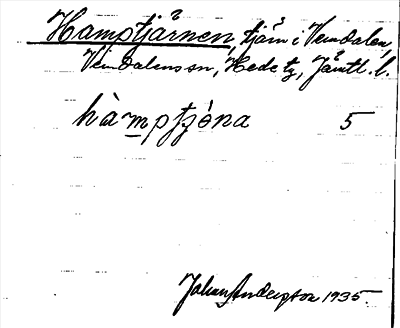 Hamptjärnen, tjärn i Vemdalen,
Vemdalens sn, Hede tg, Jämtl. l.
hàmptʒɵ́na 5
Johan Anderson 1935.